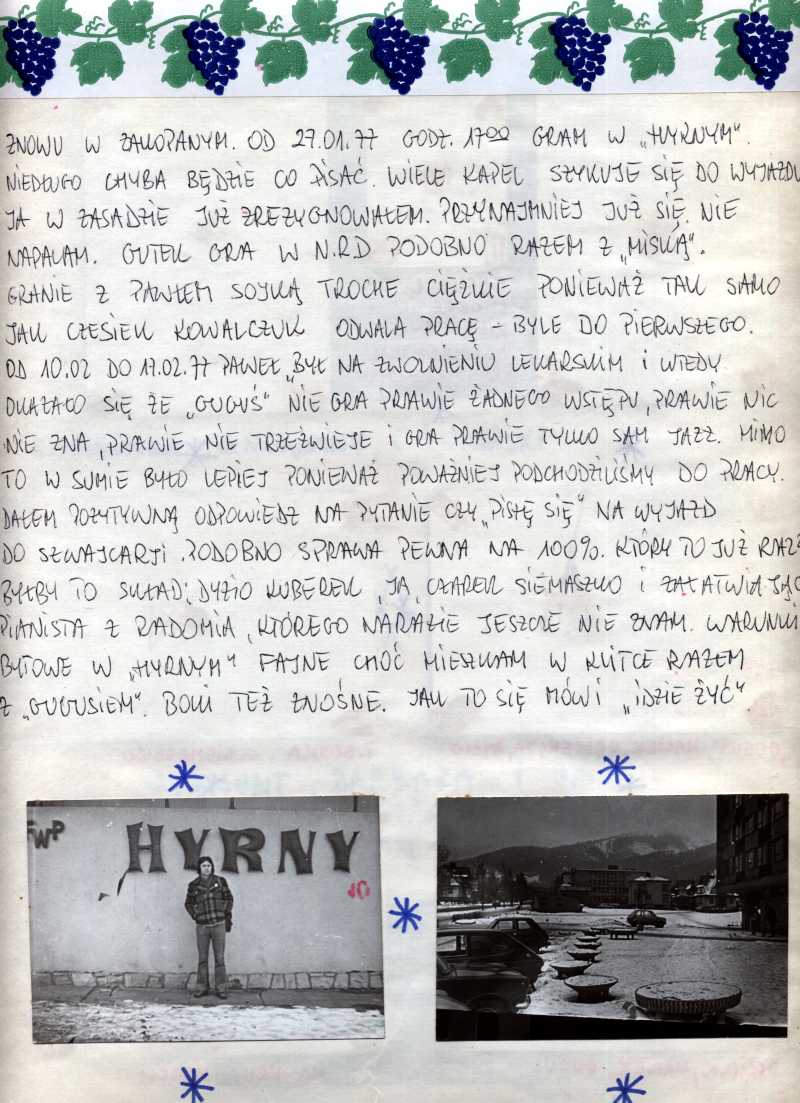 ZNOWU W ZAKOPANYM. OD 27.01.77 GODZ. 17⁰⁰ GRAM W „HYRNYM".
NIEDŁUGO CHYBA BĘDZIE CO PISAĆ. WIELE KAPEL SZYKUJE SIĘ DO WYJAZDU
JA W ZASADZIE JUŻ ZREZYGNOWAŁEM. PRZYNAJMNIEJ JUŻ SIĘ NIE
NAPALAM. GUTEK GRA W N.R.D PODOBNO RAZEM Z „MIŚKĄ".
GRANIE Z PAWŁEM SOYKĄ TROCHE CIĘŻKIE PONIEWAŻ TAK SAMO
JAK CZESIEK KOWALCZUK ODWALA PRACĘ – BYLE DO PIERWSZEGO.
OD 10.02 DO 17.02.77 PAWEŁ BYŁ NA ZWOLNIENIU LEKARSKIM I WTEDY
OKAZAŁO SIĘ ŻE „GUGUŚ" NIE GRA PRAWIE ŻADNEGO WSTĘPU, PRAWIE NIC
NIE ZNA, PRAWIE NIE TRZEŹWIEJE I GRA PRAWIE TYLKO SAM JAZZ. MIMO
TO W SUMIE BYŁO LEPIEJ PONIEWAŻ POWAŻNIEJ PODCHODZILIŚMY DO PRACY.
DAŁEM POZYTYWNĄ ODPOWIEDZ NA PYTANIE CZY „PISZĘ SIĘ" NA WYJAZD
DO SZWAJCARJI. PODOBNO SPRAWA PEWNA NA 100%. KTÓRY TO JUŻ RAZ?
BYŁBY TO SKŁAD: DYZIO KUBEREK, JA, CZAREK SIEMASZKO I ZAŁATWIAJĄC
PIANISTA Z RADOMIA, KTÓREGO NARAZIE JESZCZE NIE ZNAM. WARUNKI
BYTOWE W „HYRNYM" FAJNE CHOĆ MIESZKAM W KLITCE RAZEM
Z „GUGUSIEM". BOKI TEŻ ZNOŚNE. JAK TO SIĘ MÓWI „IDZIE ŻYĆ".
FWP
HYRNY